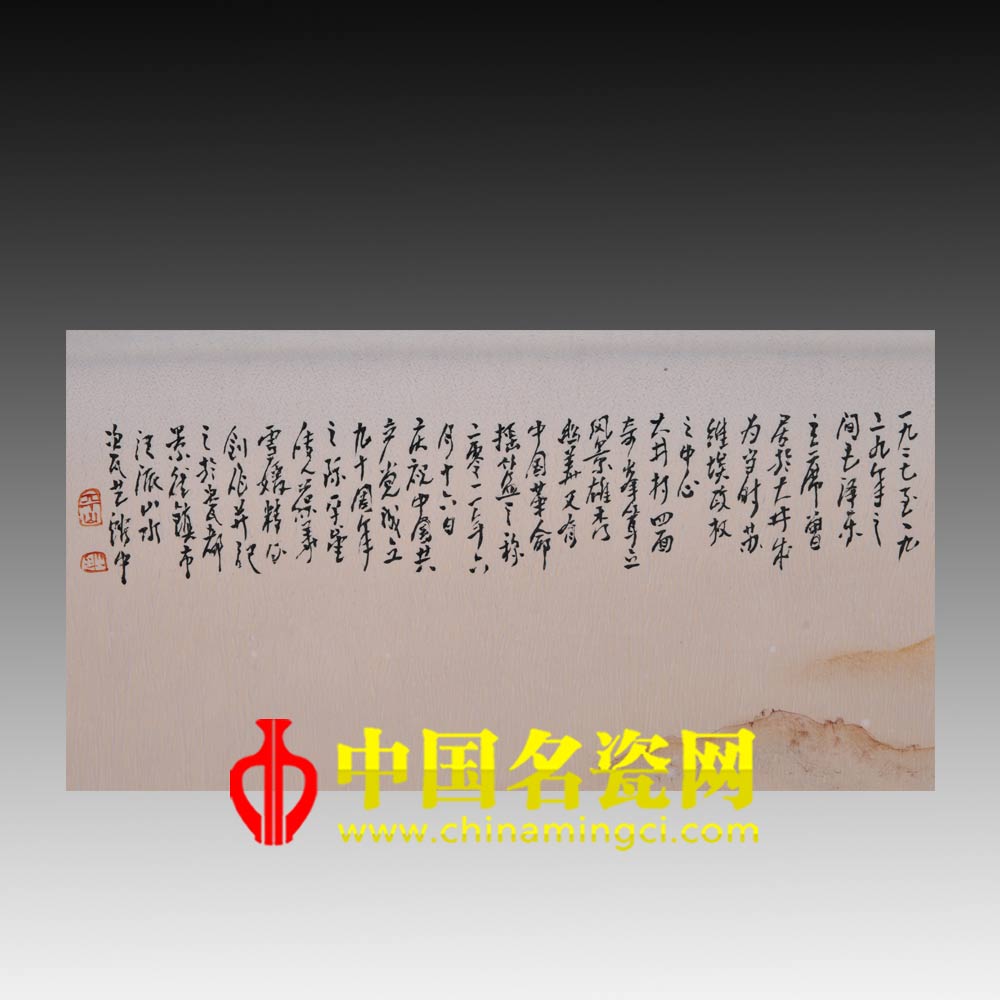 一九二七至一九
二九年之
间毛泽东
主席曾
居於大井成
为当时苏
维埃政权
之中心
大井村四面
奇峯耸立
风景雄秀
幽美又有
中国革命
摇篮之称
二零一一年六
月十六日
庆祝中国共
产党成立
九十周年
之际平
雪媛精心
创作并记
之於瓷都
景德镇市
汪派山水
艺 中
中国名瓷网
www.chinamingci.com